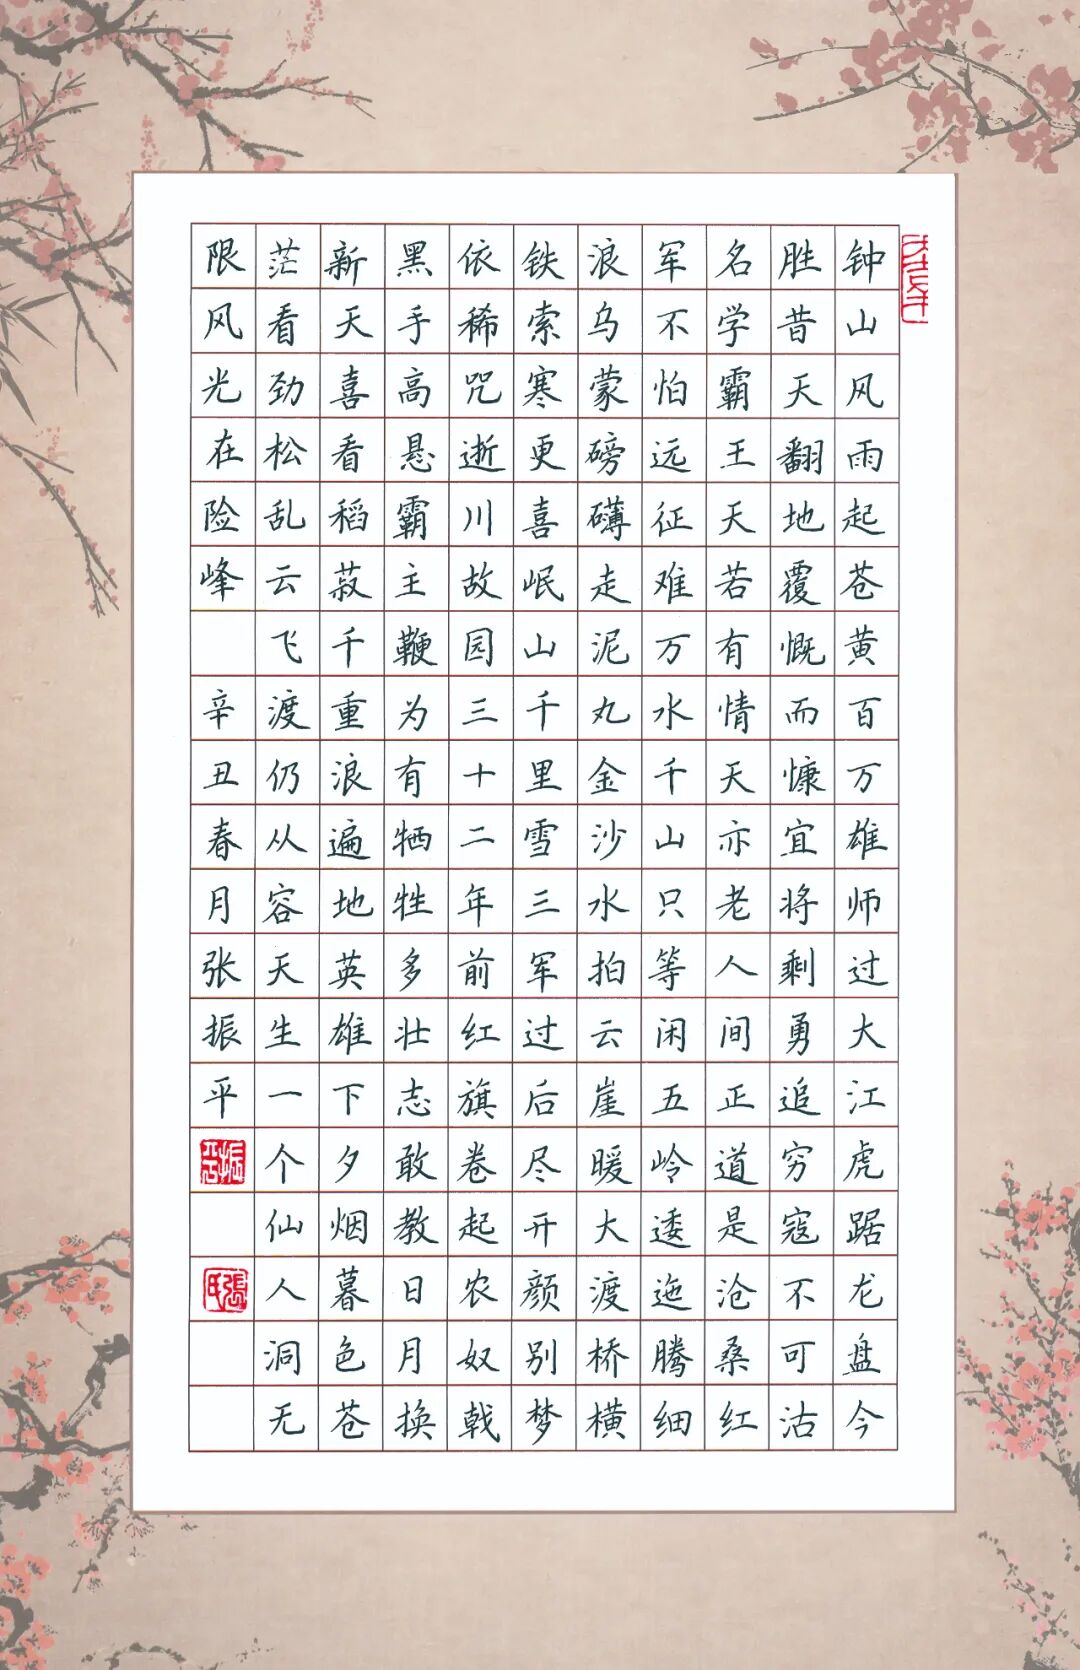 钟山风雨起苍黄百万雄师过大江虎踞龙盘今
胜昔天翻地覆慨而慷宜将剩勇追穷寇不可沽
名学霸王天若有情天亦老人间正道是沧桑红
军不怕远征难万水千山只等闲五岭逶迤腾细
浪乌蒙磅礴走泥丸金沙水拍云崖暖大渡桥横
铁索寒更喜岷山千里雪三军过后尽开颜别梦
依稀咒逝川故园三十二年前红旗卷起农奴戟
黑手高悬霸主鞭为有牺牲多壮志敢教日月换
新天喜看稻菽千重浪遍地英雄下夕烟暮色苍
茫看劲松乱云飞渡仍从容天生一个仙人洞无
限风光在险峰 辛丑春月张振平